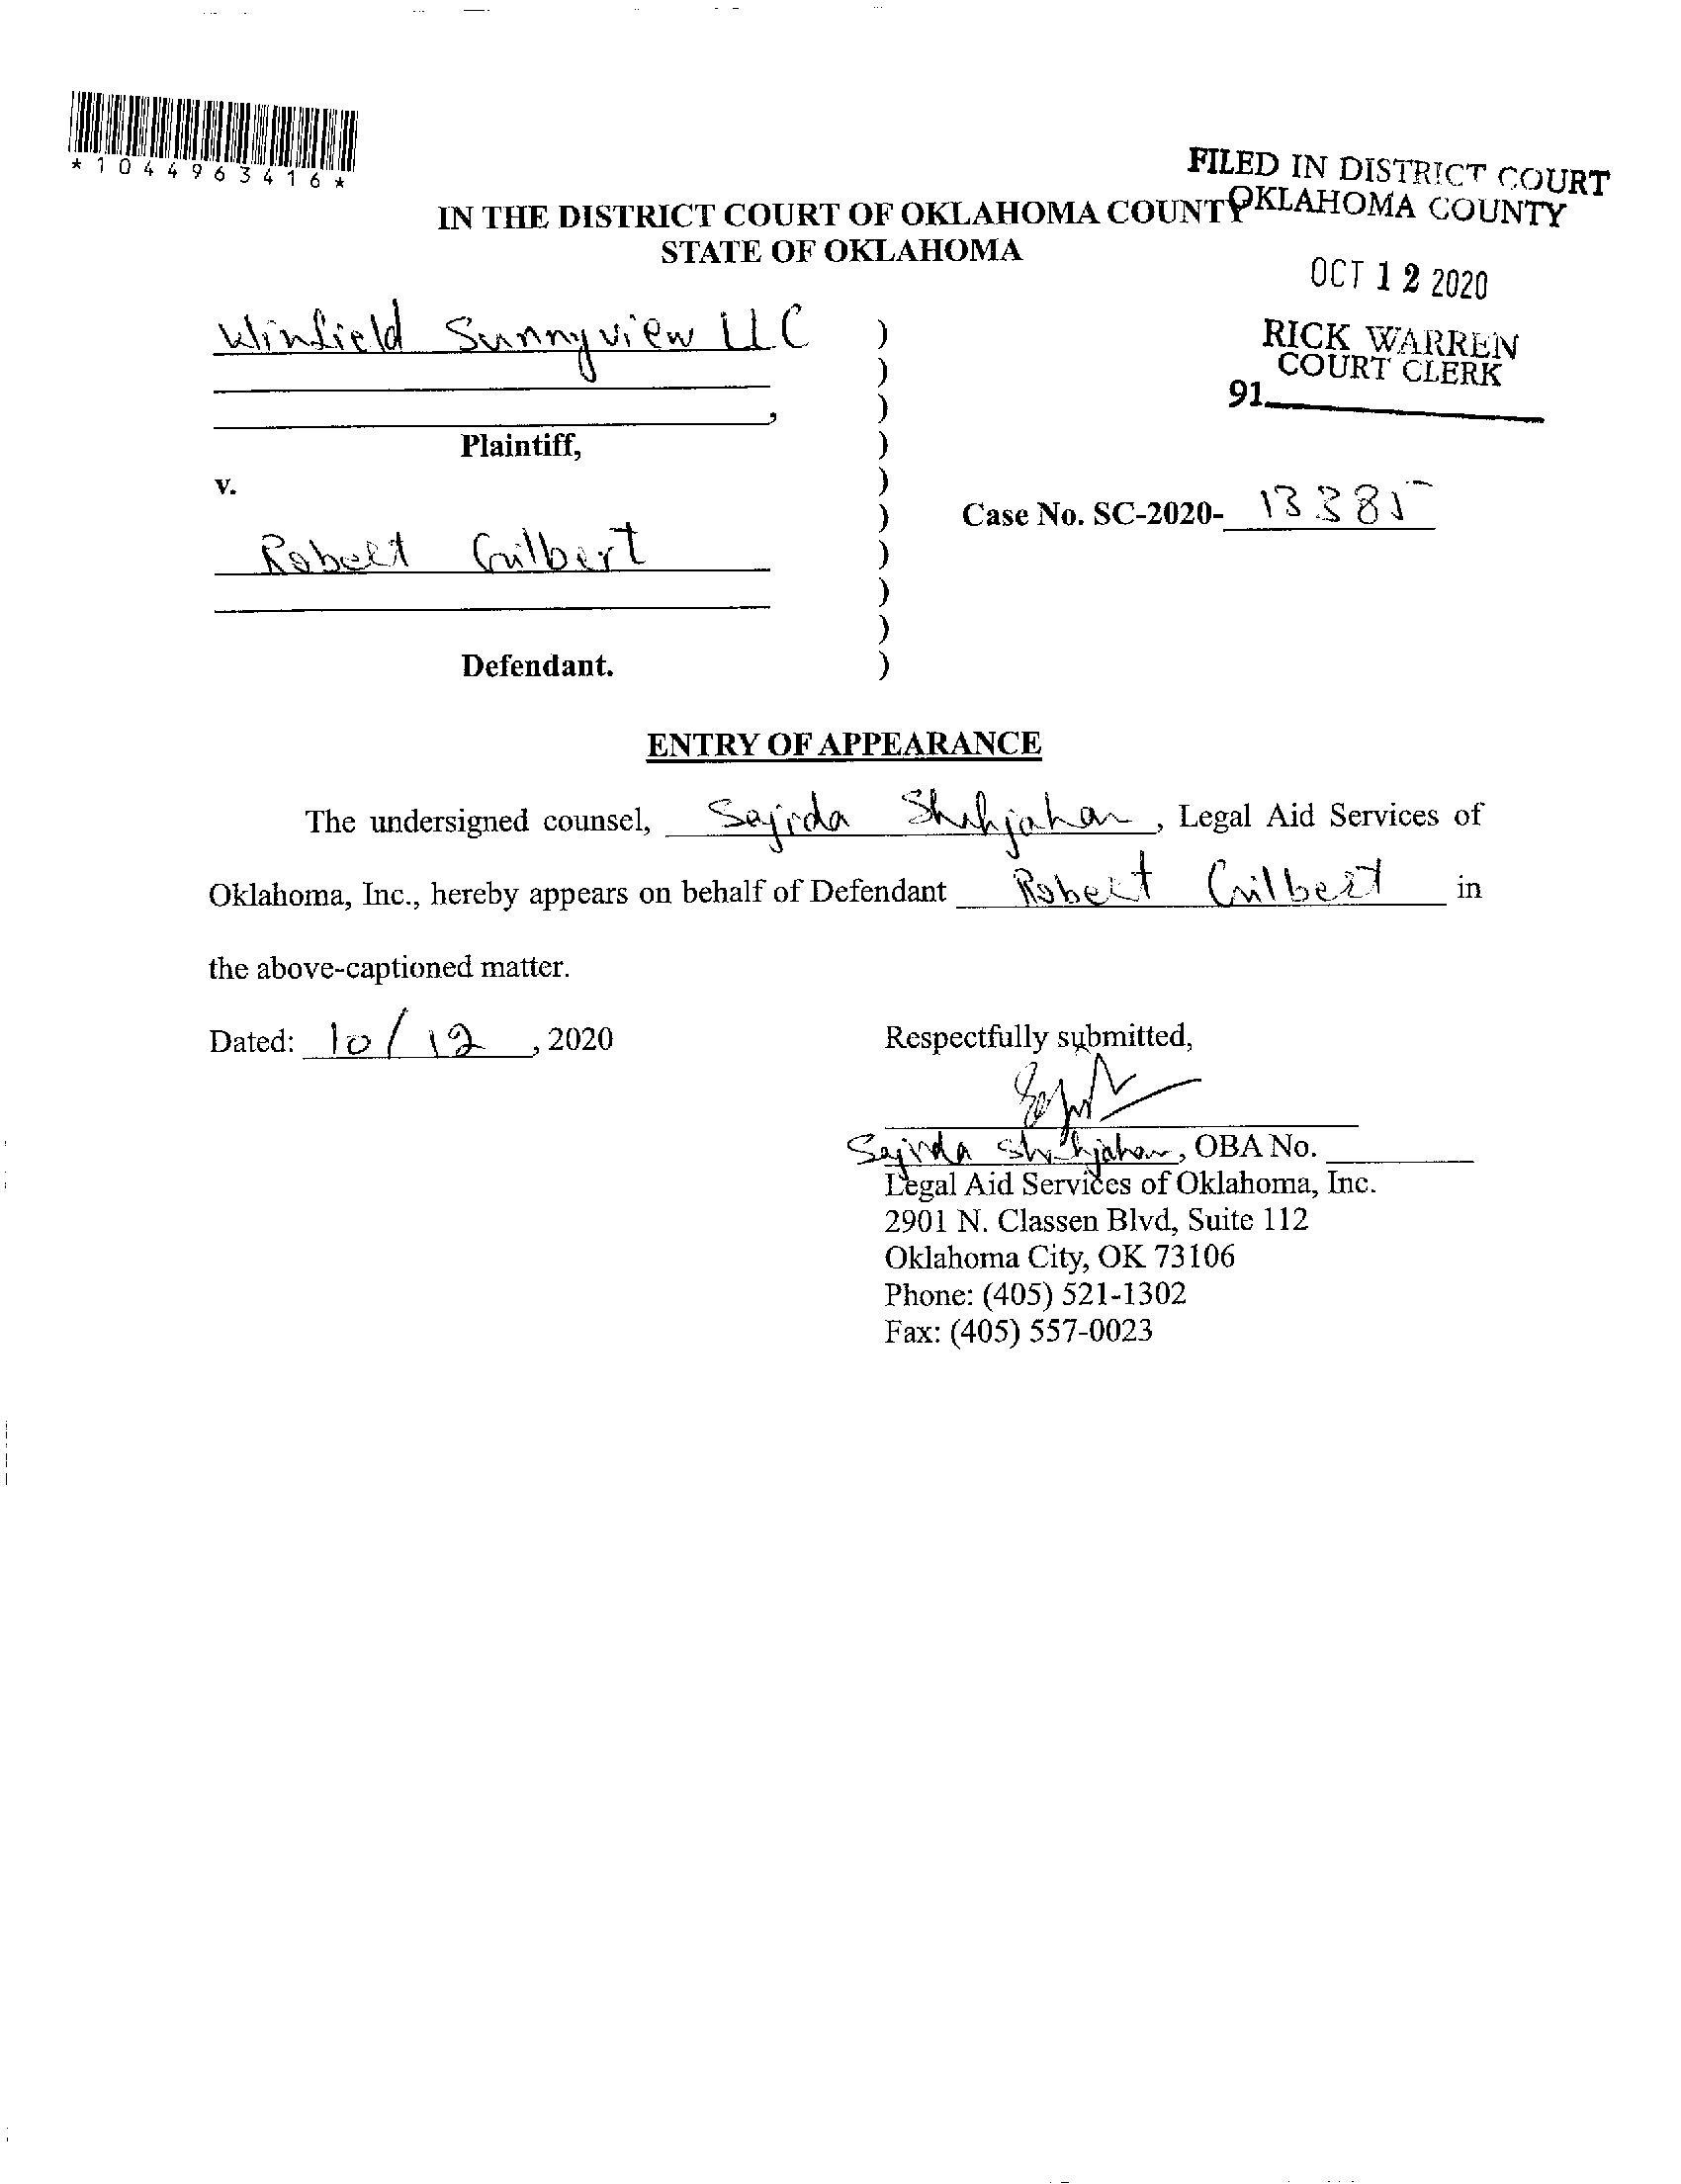 *1044963416*
FILED IN DISTRICT COURT
OKLAHOMA COUNTY
IN THE DISTRICT COURT OF OKLAHOMA COUNTY
STATE OF OKLAHOMA
OCT 12 2020
RICK WARREN
COURT CLERK
91
Winfield Sunnyview LLC )
)
, )
Plaintiff, )
v. )
Case No. SC-2020- 13385
)
Robert Gilbert )
)
)
Defendant. )
ENTRY OF APPEARANCE
The undersigned counsel, Sajida Shahjahan, Legal Aid Services of
Oklahoma, Inc., hereby appears on behalf of Defendant Robert Gilbert in
the above-captioned matter.
Dated: 10/12, 2020
Respectfully submitted,
Sajida Shahjahan, OBA No.
Legal Aid Services of Oklahoma, Inc.
2901 N. Classen Blvd, Suite 112
Oklahoma City, OK 73106
Phone: (405) 521-1302
Fax: (405) 557-0023